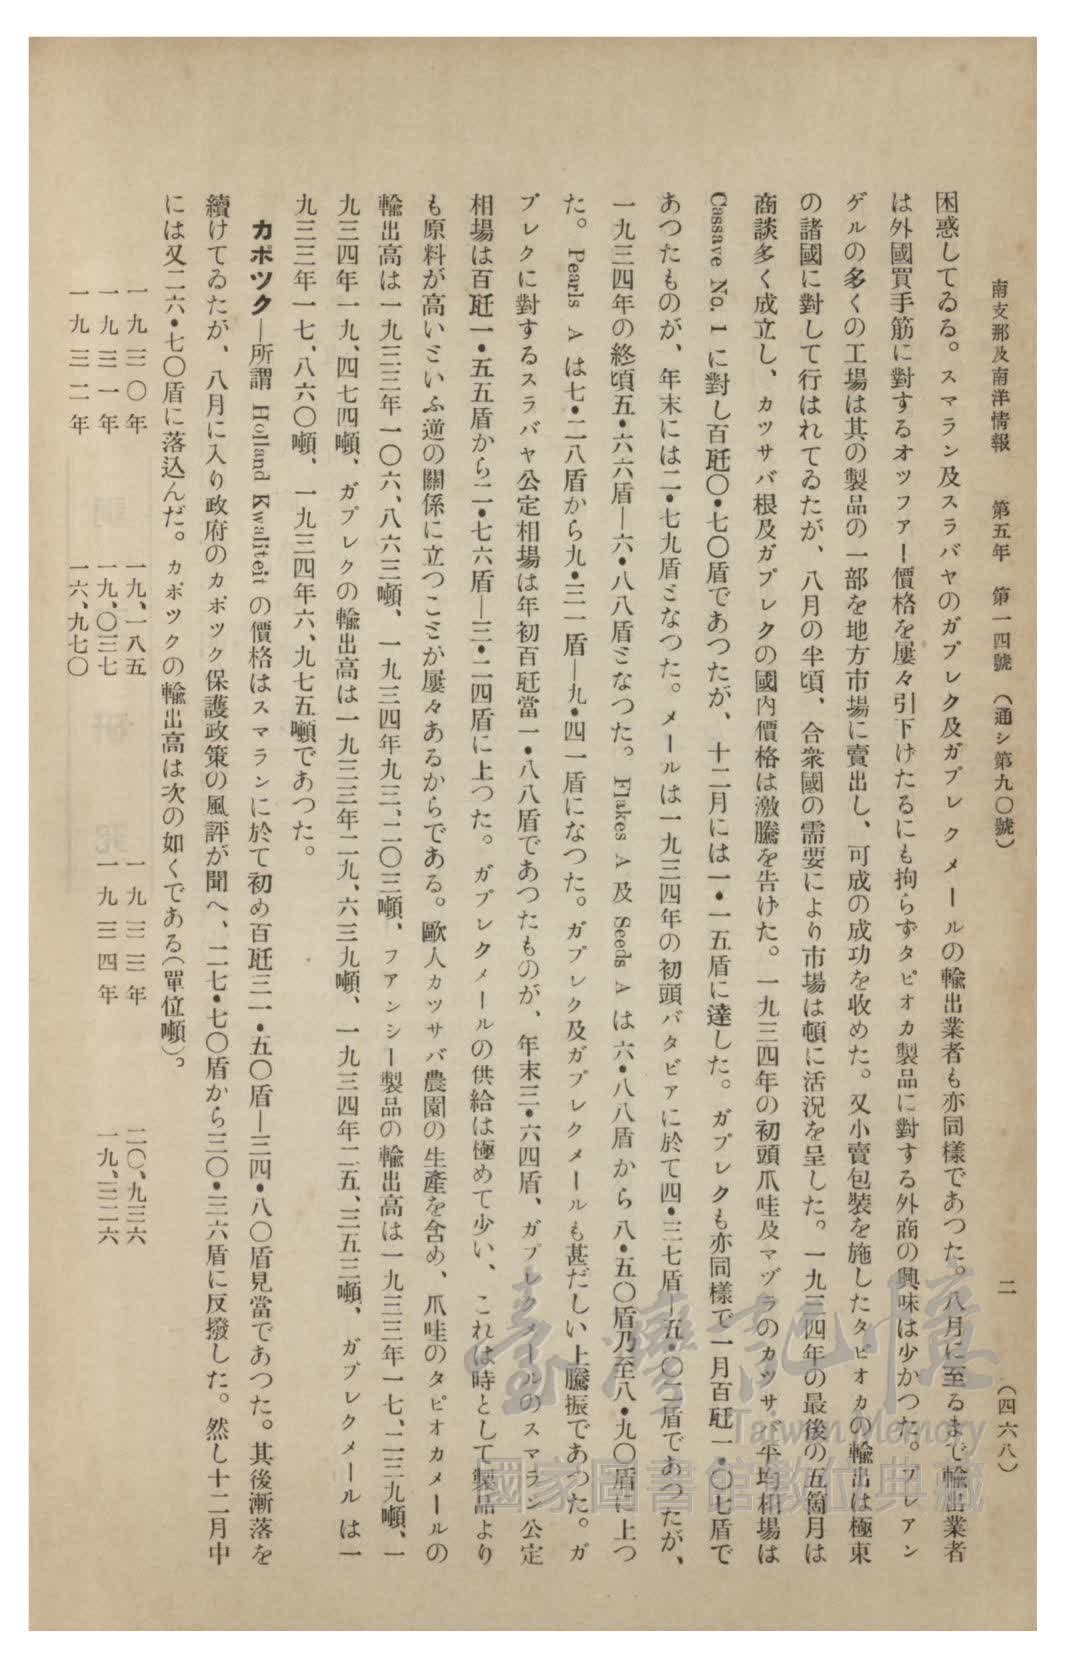 南支那及南洋情報　第五年　第一四號　（通シ第九〇號）　二　（四六八）
困惑してゐる。スマラン及スラバヤのガプレク及ガプレクメールの輸出業者も亦同樣であつた。八月に至るまで輸出業者
は外國買手筋に對するオツフアー價格を屢々引下げたるにも拘らずタピオカ製品に對する外商の興味は少かつた。フレアン
ゲルの多くの工場は其の製品の一部を地方市場に賣出し、可成の成功を收めた。又小賣包裝を施したタピオカの輸出は極東
の諸國に對して行はれてゐたが、八月の半頃、合衆國の需要により市場は頓に活況を呈した。一九三四年の最後の五箇月は
商談多く成立し、カツサバ根及ガプレクの國内價格は激騰を告げた。一九三四年の初頭爪哇及マヅラのカツサバ平均相場は
Cassave No. 1 に對し百瓩〇•七〇盾であつたが、十二月には一•一五盾に達した。ガプレクも亦同樣で一月百瓩一•〇七盾で
あつたものが、年末には二•七九盾ミなつた。メールは一九三四年の初頭バタビアに於て四•三七盾―五•〇二盾であつたが、
一九三四年の終頃五•六六盾―六•八八盾ミなつた。Flakes A 及 Seeds A は六•八八盾から八•五〇盾乃至八•九〇盾に上つ
た。Pearls A は七•二八盾から九•三一盾―九•四一盾になつた。ガプレク及ガプレクメールも甚だしい上騰振であつた。ガ
プレクに對するスラバヤ公定相場は年初百瓩當一•八八盾であつたものが、年末三•六四盾、ガプレクメールのスマラン公定
相場は百瓩一•五五盾から二•七六盾―三•二四盾に上つた。ガプレクメールの供給は極めて少い、これは時として製品より
も原料が高いミいふ逆の關係に立つこミが屢々あるからである。歐人カツサバ農園の生產を含め、爪哇のタピオカメールの
輸出高は一九三三年一〇六、八六三噸、一九三四年九三、二〇三噸、フアンシー製品の輸出高は一九三三年一七、二三九噸、一
九三四年一九、四七四噸、ガプレクの輸出高は一九三三年二九、六三九噸、一九三四年二五、三五三噸、ガプレクメールは一
九三三年一七、八六〇噸、一九三四年六、九七五噸であつた。
カポツク―所謂 Holland Kwaliteit の價格はスマランに於て初め百瓩三一•五〇盾―三四•八〇盾見當であつた。其後漸落を
續けてゐたが、八月に入り政府のカポツク保護政策の風評が聞へ、二七•七〇盾から三〇•三六盾に反撥した。然し十二月中
には又二六•七〇盾に落込んだ。カポツクの輸出高は次の如くである（單位噸）。
一九三〇年　一九、一八五　一九三三年　二〇、九三六
一九三一年　一九、〇三七　一九三四年　一九、三二六
一九三二年　一六、九七〇
臺灣記憶
Taiwan Memory
國家圖書館數位典藏